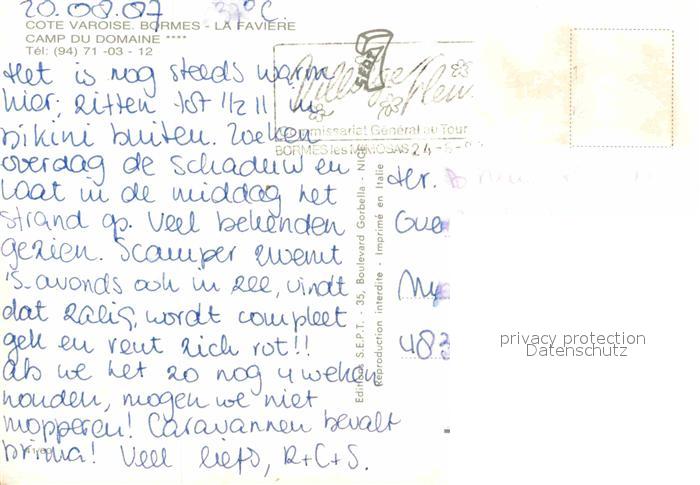 20.08.87 37°C.
COTE VAROISE. BORMES - LA FAVIERE
CAMP DU DOMAINE ****
Tél: (94) 71 -03 - 12
Het is nog steeds warm
hier; zitten tot 1/2 11 in
bikini buiten. Zoeken
overdag de schaduw en
laat in de middag het
strand op. Veel bekenden
gezien. Scamper zwemt
's-avonds ook in zee, vindt
dat zalig, wordt compleet
gek en rent zich rot!!
Als we het zo nog 4 weken
houden, mogen we niet
mopperen! Caravannen bevalt
prima! Veel liefs, R+C+S.
Village Fleuri
Commissariat Général au Tour
BORMES les MIMOSAS 24-
Editions S.E.P.T. - 35, Boulevard Gorbella - NICE
Reproduction interdite - Imprimé en Italie
SEPT
Hr.
483
privacy protection
Datenschutz